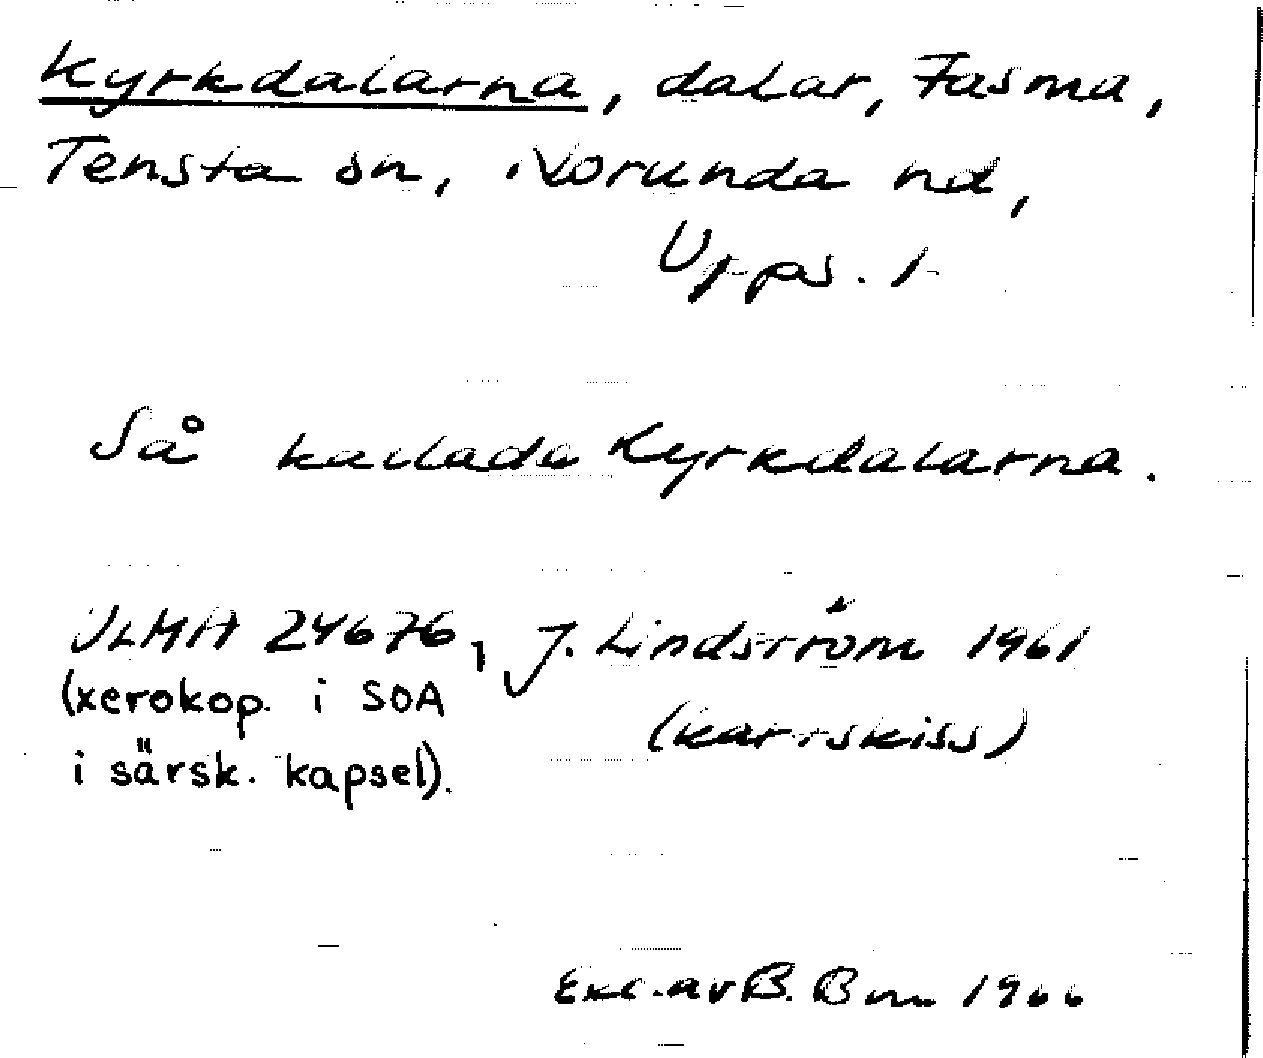 Kyrkdalarna, dalar, Fasma,
Tensta sn, Norunda hd,
Upps. l
Så kallade Kyrkdalarna.
ULMA 24676, J. Lindström 1961
(xerokop. i SOA (kartskiss)
i särsk. kapsel).
Exc. av B. Bm 1966